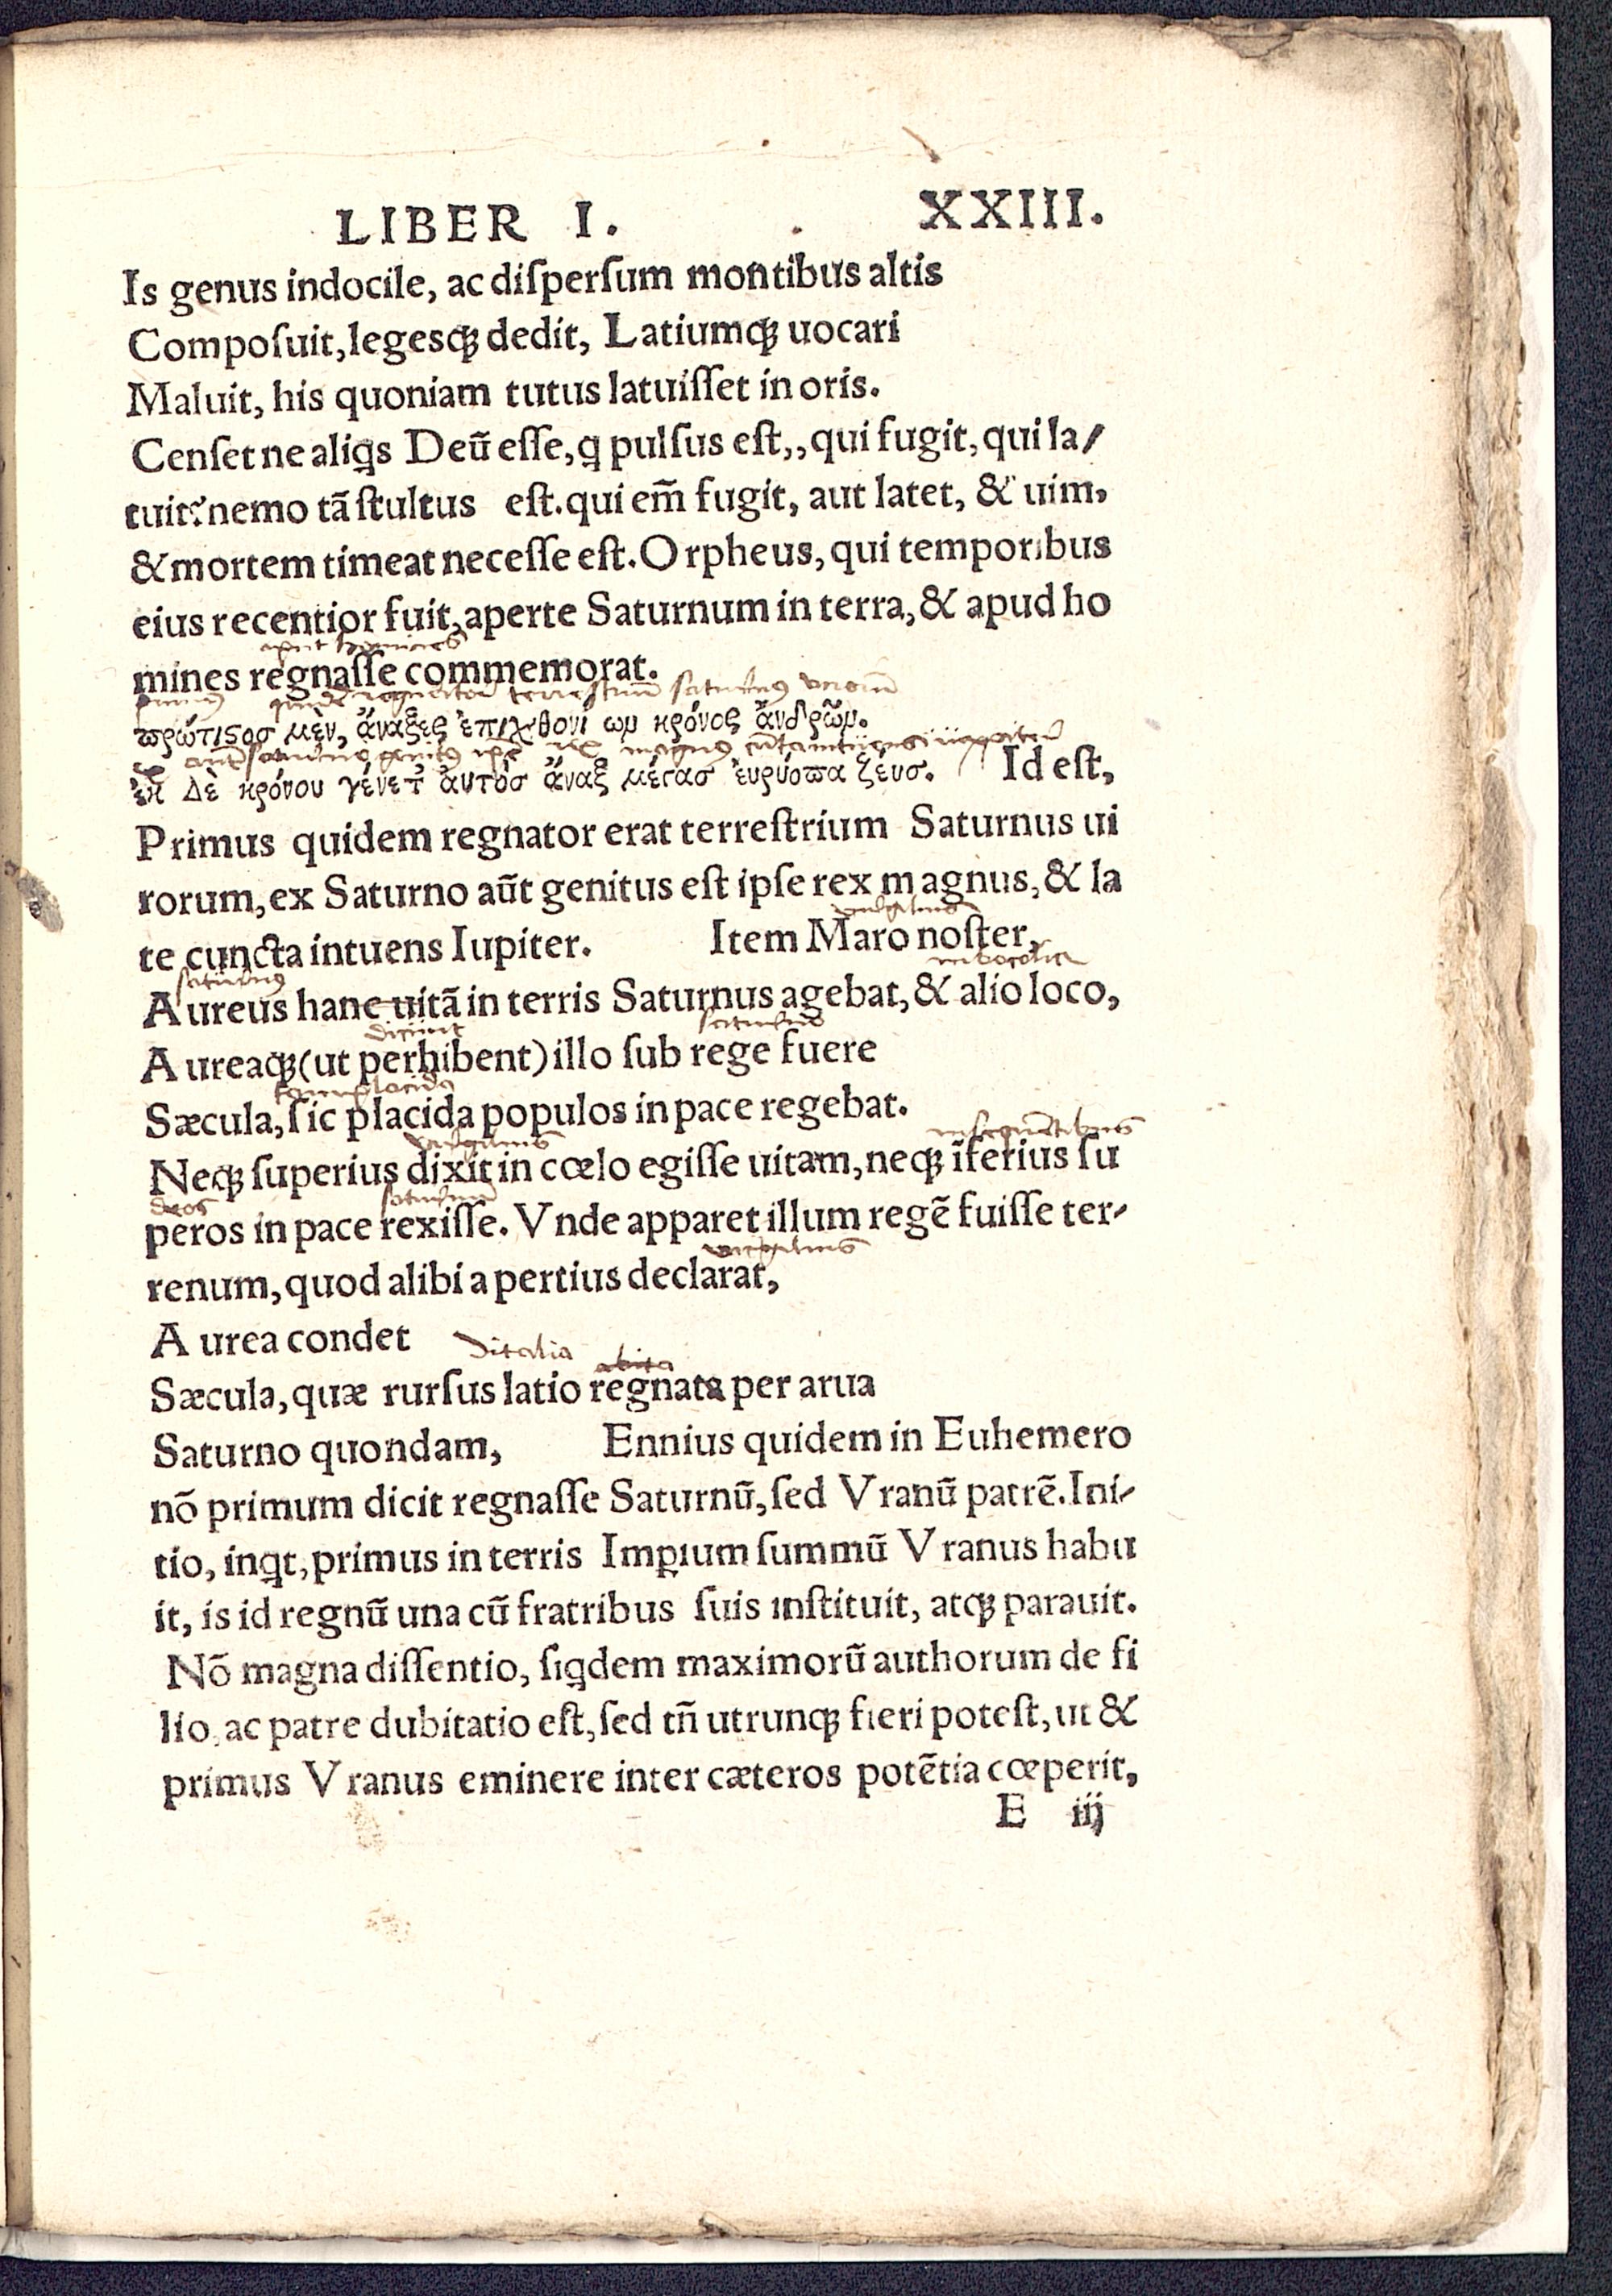 LIBER I. XXIII.
Is genus indocile, ac diſperſum montibus altis
Compoſuit, legesq́ꝫ dedit, Latiumq́ꝫ uocari
Maluit, his quoniam tutus latuiſſet in oris.
Cenſet ne aliꝗs Deū eſſe, ꝗ pulſus eſt,, qui fugit, qui la/
tuit? nemo tã ſtultus est. qui em̃ fugit, aut latet, & uim,
& mortem timeat neceſſe eſt. Orpheus, qui temporibus
eius recentior fuit, aperte Saturnum in terra, & apud ho
aput homines
mines regnaſſe commemorat.
primus quidē regnator terrestriū saturnus virorū
πρώτιϛοσ μὲν, ἄναξες ἐπιχθονί ων κρόνος ἄνδρῶν.
ex autē saturno genitus ipse rex magnus cūta intuens iuppiter
ἐκ Δὲ κρόνου γένετ ἀυτὸσ ἄναξ μέγασ ἐυρύοπα ζέυσ. Id eſt,
Primus quidem regnator erat terreſtrium Saturnus ui
rorum, ex Saturno aūt genitus eſt ipſe rex magnus, & la
virgilius
te cuncta intuens Iupiter. Item Maro noſter,
saturnus in bocolica
Aureus hanc uitã in terris Saturnus agebat, & alio loco,
dicunt saturno
Aureaq́ꝫ (ut perhibent) illo ſub rege fuere
tam placidus
Sæcula, ſic placida populos in pace regebat.
virgilius in sequētibus
Neq́ꝫ ſuperius dixit in cœlo egiſſe uitam, neq́ꝫ ĩferius ſu
deos saturnū
peros in pace rexiſſe. Vnde apparet illum regẽ fuiſſe ter⸗
virgilius
renum, quod alibi apertius declarat,
Aurea condet
Ditalia
Sæcula, quæ rurſus latio regnata per arua
Saturno quondam, Ennius quidem in Euhemero
nõ primum dicit regnaſſe Saturnū, ſed Vranū patrẽ. Ini⸗
tio, inꝗt, primus in terris Imꝑium ſummū Vranus habu
it, is id regnū una cū fratribus ſuis inſtituit, atq́ꝫ parauit.
Nõ magna diſſentio, ſiꝗdem maximorū authorum de fi
lio, ac patre dubitatio eſt, ſed tñ utrunq́ꝫ fieri poteſt, ut &
primus Vranus eminere inter cæteros potẽtia cœperit,
E iij